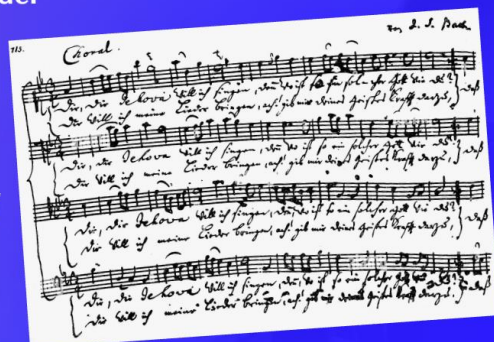 113.
Choral.
von J. S. Bach
Dir, dir Jehova will ich singen, denn wo ist so ein solcher Gott wie du?
Dir will ich meine Lieder bringen, ach! gib mir deines Geistes Krafft darzu, } daß
Dir, dir Jehova will ich singen, denn wo ist so ein solcher Gott wie du?
Dir will ich meine Lieder bringen, ach! gib mir deines Geistes Krafft darzu, } daß
Dir, dir Jehova will ich singen, denn wo ist so ein solcher Gott wie du?
Dir will ich meine Lieder bringen, ach! gib mir deines Geistes Krafft darzu, } daß
Dir, dir Jehova will ich singen, denn wo ist so ein solcher Gott wie du?
Dir will ich meine Lieder bringen, ach! gib mir deines Geistes Krafft darzu, } daß